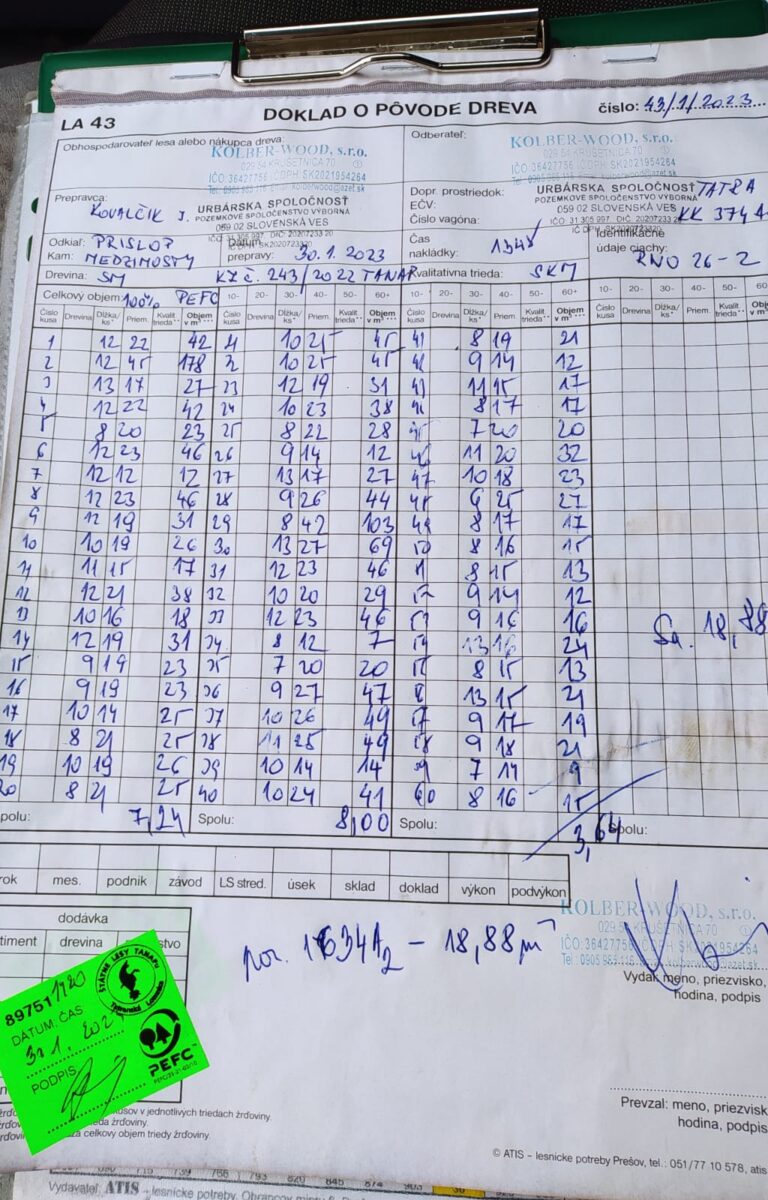 LA 43 DOKLAD O PÔVODE DREVA číslo: 43/1/2023
Obhospodarovateľ lesa alebo nákupca dreva: Odberateľ:
KOLBER-WOOD, s.r.o. KOLBER-WOOD, s.r.o.
029 54 KRUŠETNICA 70 029 54 KRUŠETNICA 70
IČO: 36427756 IČ DPH: SK2021954264 IČO: 36427756 IČ DPH: SK2021954264
Prepravca: KOVALČIK J. URBÁRSKA SPOLOČNOSŤ Dopr. prostriedok: URBÁRSKA SPOLOČNOSŤ TATRA
POZEMKOVÉ SPOLOČENSTVO VÝBORNÁ EČV: POZEMKOVÉ SPOLOČENSTVO VÝBORNÁ
059 02 SLOVENSKÁ VES Číslo vagóna: 059 02 SLOVENSKÁ VES KK 374A
Odkiaľ: PRISLOP Dátum Čas Identifikačné
Kam: MEDZIMOSTY prepravy: 30.1.2023 nakládky: údaje ciachy: RNO 26-2
Drevina: SM KZ č. 243/2022 TANAP Kvalitatívna trieda: SKM
Celkový objem: 100% PEFC 10- 20- 30- 40- 50- 60+ 10- 20- 30- 40- 50- 60+ 10- 20- 30- 40- 50- 60
Číslo kusa Drevina Dĺžka/ks* Priem. Kvalit. trieda** Objem v m³ *** Číslo kusa Drevina Dĺžka/ks* Priem. Kvalit. trieda** Objem v m³ *** Číslo kusa Drevina Dĺžka/ks* Priem. Kvalit. trieda** Objem v m³ *** Číslo kusa Drevina Dĺžka/ks* Priem. Kvalit. trieda** Objem v m³
1 12 22 42 21 10 25 45 41 8 19 21
2 12 45 178 22 10 25 45 42 9 14 12
3 13 17 27 23 12 19 31 43 11 15 17
4 12 22 42 24 10 23 38 44 8 17 17
5 8 20 23 25 8 22 28 45 7 20 20
6 12 23 46 26 9 14 12 46 11 20 32
7 12 12 12 27 13 17 27 47 10 18 23
8 12 23 46 28 9 26 44 48 6 25 27
9 12 19 31 29 8 42 103 49 8 17 17
10 10 19 26 30 13 27 69 50 8 16 15
11 11 15 17 31 12 23 46 51 8 15 13
12 12 21 38 32 10 20 29 52 9 14 12
13 10 16 18 33 12 23 46 53 9 16 16
14 12 19 31 34 8 12 7 54 13 16 24
15 9 19 23 35 7 20 20 55 8 15 13
16 9 19 23 36 9 27 47 56 13 15 21
17 10 14 25 37 10 26 49 57 9 17 19
18 8 21 25 38 11 25 49 58 9 18 21
19 10 19 26 39 10 14 14 59 7 14 9
20 8 21 25 40 10 24 41 60 8 16 15
Sa. 18,88
polu: 7,24 Spolu: 8,00 Spolu: 3,64 Spolu:
rok mes. podnik závod LS stred. úsek sklad doklad výkon podvýkon
dodávka
timent drevina stvo
por. 1634A2 - 18,88 m³
KOLBER-WOOD, s.r.o.
029 54 KRUŠETNICA 70
IČO: 36427756
Vydal: meno, priezvisko,
hodina, podpis
89751
ŠTÁTNE LESY TANAPU
Tatranská Lomnica
DÁTUM, ČAS
PODPIS
PEFC
Prevzal: meno, priezvisk
hodina, podpis
usov v jednotlivých triedach žrďoviny.
za celkový objem triedy žrďoviny.
© ATIS – lesnícke potreby Prešov, tel.: 051/77 10 578, atis
Vydavateľ: ATIS - lesnícke potreby,